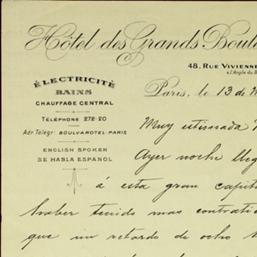 Hôtel des Grands Boule
48, RUE VIVIENNE
ÉLECTRICITÉ
BAINS
CHAUFFAGE CENTRAL
TÉLÉPHONE 272-20
Adr Telegr. BOULVAROTEL PARIS
ENGLISH SPOKEN
SE HABLA ESPAÑOL
Paris, le 13 de
Muy estimada
Ayer noche lleg
á esta gran capit
haber tenido mas contrati
que un retardo de ocho